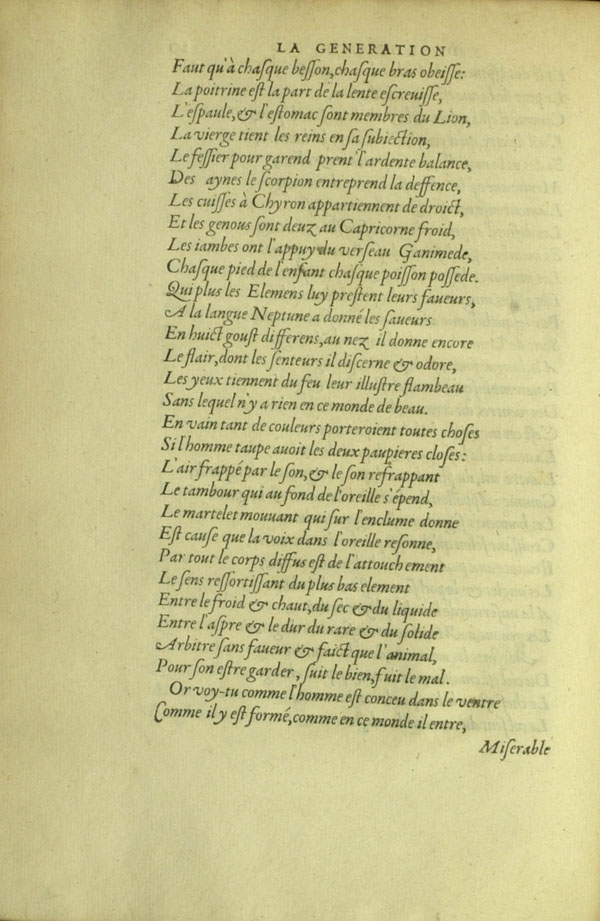 LA GENERATION
Faut qu'à chaſque beſſon, chaſque bras obeiſſe:
La poitrine eſt la part de la lente eſcreuiſſe,
L'eſpaule, & l'eſtomac ſont membres du Lion,
La vierge tient les reins en ſa ſubiection,
Le feſſier pour garend prent l'ardente balance,
Des aynes le ſcorpion entreprend la deffence,
Les cuiſſes à Chyron appartiennent de droict,
Et les genous ſont deuz au Capricorne froid,
Les iambes ont l'appuy du verſeau Ganimede,
Chaſque pied de l'enfant chaſque poiſſon poſſede.
Qui plus les Elemens luy preſtent leurs faueurs,
A la langue Neptune a donné les ſaueurs
En huict gouſt differens, au nez il donne encore
Le flair, dont les ſenteurs il diſcerne & odore,
Les yeux tiennent du feu leur illuſtre flambeau
Sans lequel n'y a rien en ce monde de beau.
En vain tant de couleurs porteroient toutes choſes
Si l'homme taupe auoit les deux paupieres cloſes:
L'air frappé par le ſon, & le ſon refrappant
Le tambour qui au fond de l'oreille s'épend,
Le martelet mouuant qui ſur l'enclume donne
Eſt cauſe que la voix dans l'oreille reſonne,
Par tout le corps diffus eſt de l'attouchement
Le ſens reſſortiſſant du plus bas element
Entre le froid & chaut, du ſec & du liquide
Entre l'aſpre & le dur du rare & du ſolide
Arbitre ſans faueur & faict que l'animal,
Pour ſon eſtre garder, ſuit le bien, fuit le mal.
Or voy-tu comme l'homme eſt conceu dans le ventre
Comme il y eſt formé, comme en ce monde il entre,
Miſerable